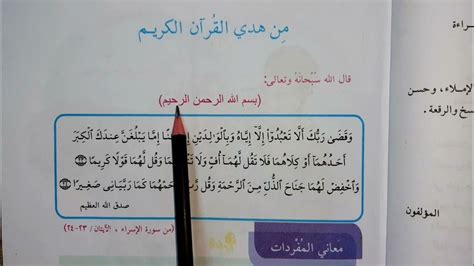 مِن هدي القُرآن الكريم
قال الله سُبْحانَهُ وتعالى:
(بسم الله الرحمن الرحيم)
وَقَضَىٰ رَبُّكَ أَلَّا تَعْبُدُوٓا۟ إِلَّآ إِيَّاهُ وَبِٱلْوَٰلِدَيْنِ إِمَّا يَبْلُغَنَّ عِندَكَ ٱلْكِبَرَ
أَحَدُهُمَآ أَوْ كِلَاهُمَا فَلَا تَقُل لَّهُمَآ أُفٍّ وَلَا وَقُل لَّهُمَا قَوْلًا كَرِيمًا ٢٣
وَٱخْفِضْ لَهُمَا جَنَاحَ ٱلذُّلِّ مِنَ ٱلرَّحْمَةِ وَقُل رَّبِّ كَمَا رَبَّيَانِى صَغِيرًا ٢٤
صدق الله العظيم
(من سورة الإسراء ، الآيتان / ٢٣-٢٤)
مَعاني المُفْرَدات
الإملاء، وحسن
والرقعة .
المؤلفون